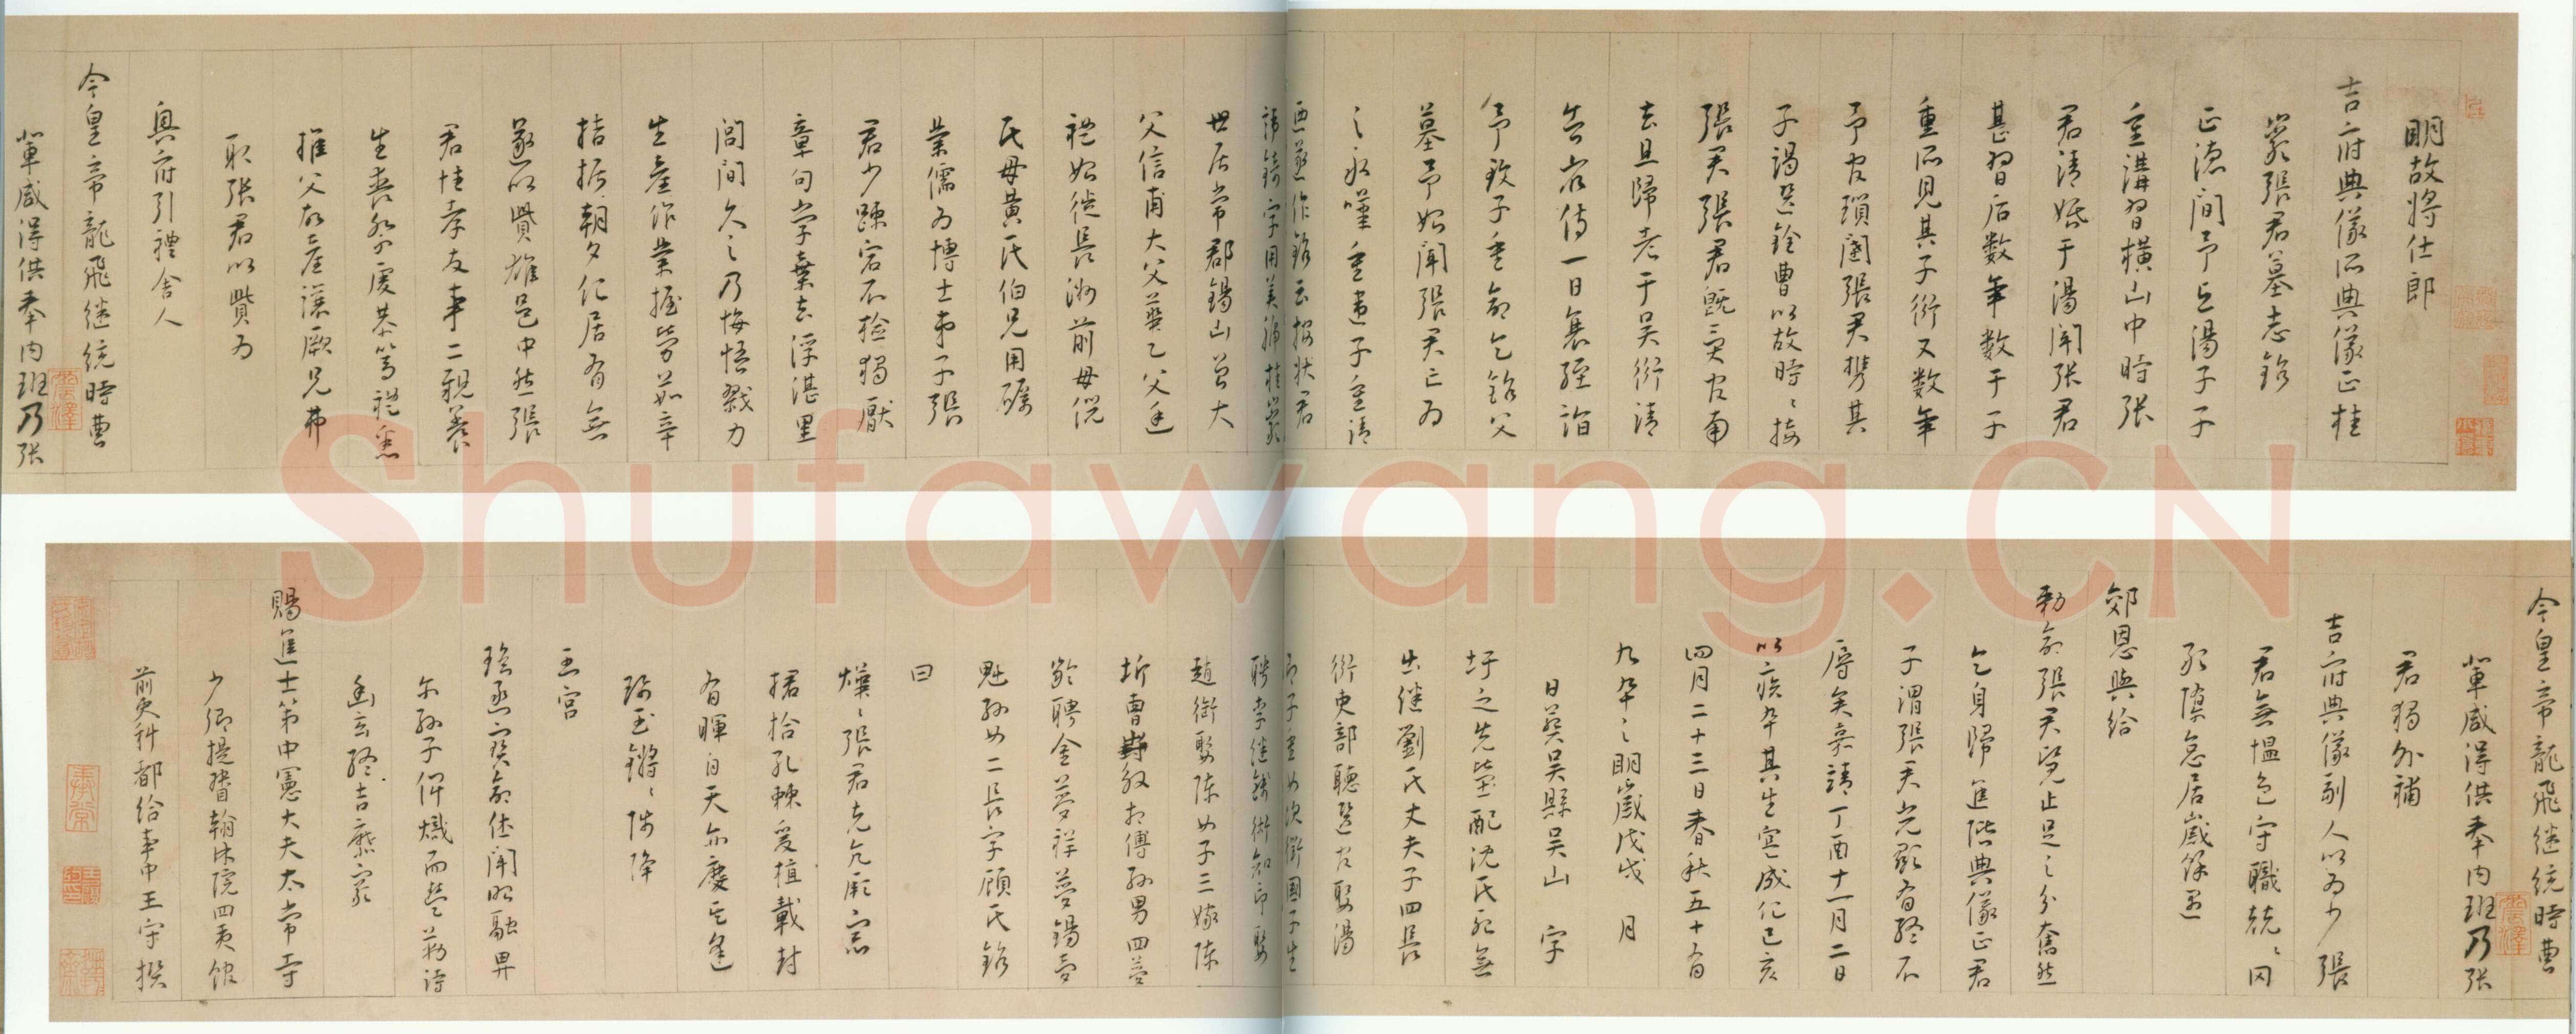 明故將仕郎
吉府典儀所典儀正桂
岩張君墓志銘
正德間予與湯子子
重講習橫山中時張
君請婚于湯聞張君
甚習后數年數于子
重所見其子衍又數年
予官瑣闥張君攜其
子謁選銓曹以故時〻接
張君張君既之官南
去且歸老于吳衍請
告省侍一日衰絰詣
予致子重命乞銘父
墓予始聞張君亡為
之永嘆重違子重請
迺遂作銘云按狀君
諱錡字用美號桂岩
世居常郡錫山曾大
父信甫大父英乙父廷
禮始徙長洲前母倪
氏母黃氏伯兄用礪
業儒為博士弟子張
君少疎宕不檢獨厭
章句學棄去浮湛里
閭間久之乃悔悟戮力
生產作業握勞茹辛
拮据朝夕化居有無
遂以貲雄邑中然張
君性孝友事二親養
生喪祭虔恭篤禮悉
推父故產讓厥兄弗
取張君以貲為
興府引禮舍人
今皇帝龍飛繼統時曹
輩咸得供奉內班乃張
今皇帝龍飛繼統時曹
輩咸得供奉內班乃張
君獨外補
吉府典儀副人以為少張
君無慍色守職兢〻罔
敢隳怠居歲餘遇
郊恩與給
勅命張君覽止足之分奮然
乞身歸進階典儀正君
子謂張君光顯有終不
辱矣嘉靖丁酉十一月二日
以疾卒其生寔成化己亥
四月二十三日春秋五十有
九卒之明歲戊戌 月
日葬吳縣吳山 字
圩之先塋配沈氏 無
出繼劉氏丈夫子四長
衍吏部聽選官娶湯
即子重女次衛國子生
聘李繼錢術知印娶
趙衡娶陳女子三嫁陳
圻曹 毅 傅孫男四夢
齡聘金夢祥夢錫夢
魁孫女二長字顧氏銘
曰
燁〻張君克亢厥宗
捃拾孔棘爰植載封
有暉自天亦慶其逢
珩玉鏘〻陟降
王宮
璿函寶命佳聞昭融畀
尔孫子俾熾而豐勒詩
幽玄終吉兆窮
賜進士第中憲大夫太常寺
少卿提督翰林院四夷館
前吏科都給事中王守撰
Shufawang.CN